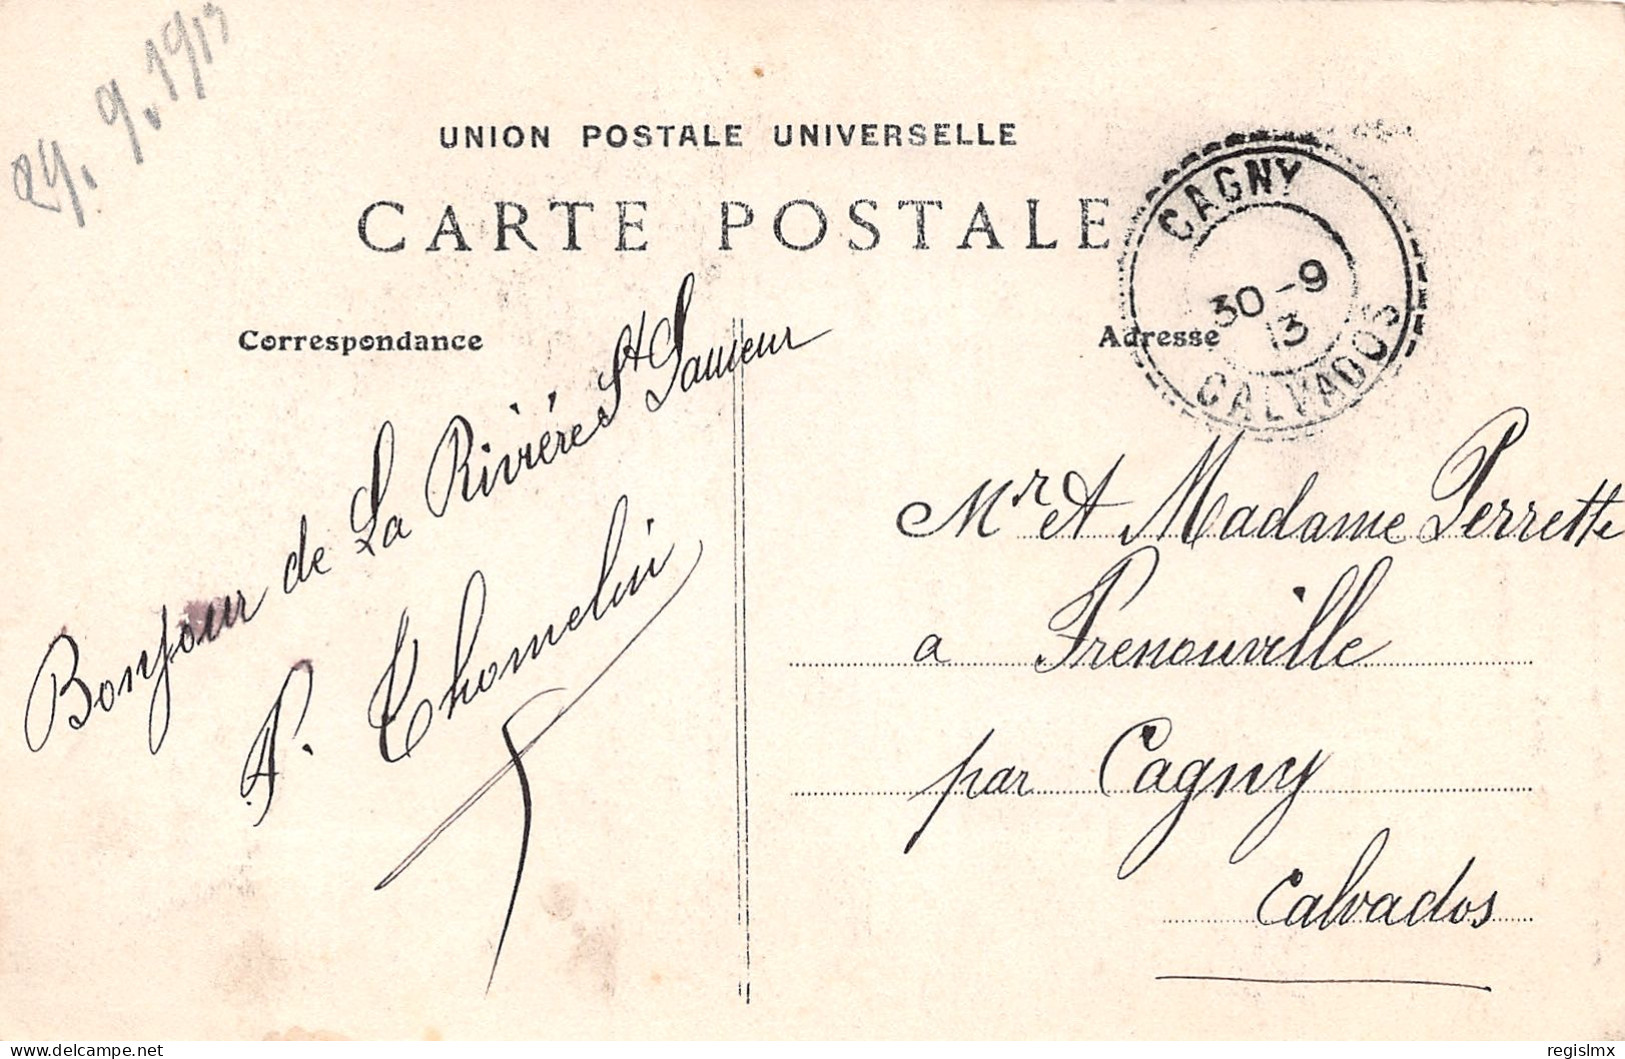 29.9.1913
UNION POSTALE UNIVERSELLE
CARTE POSTALE
Correspondance
Adresse
CAGNY
30-9
13
CALVADOS
Bonjour de La Rivière St Sauveur
P. Thomelin
Mr et Madame Perrette
a Frenouville
par Cagny
Calvados
delcampe.net
regislmx